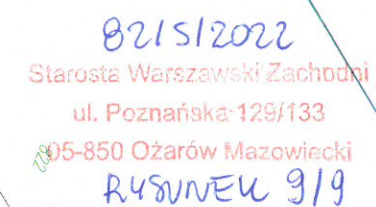 82/S/2022
Starosta Warszawski Zachodni
ul. Poznańska 129/133
05-850 Ożarów Mazowiecki
822
RYSUNEK 9/9